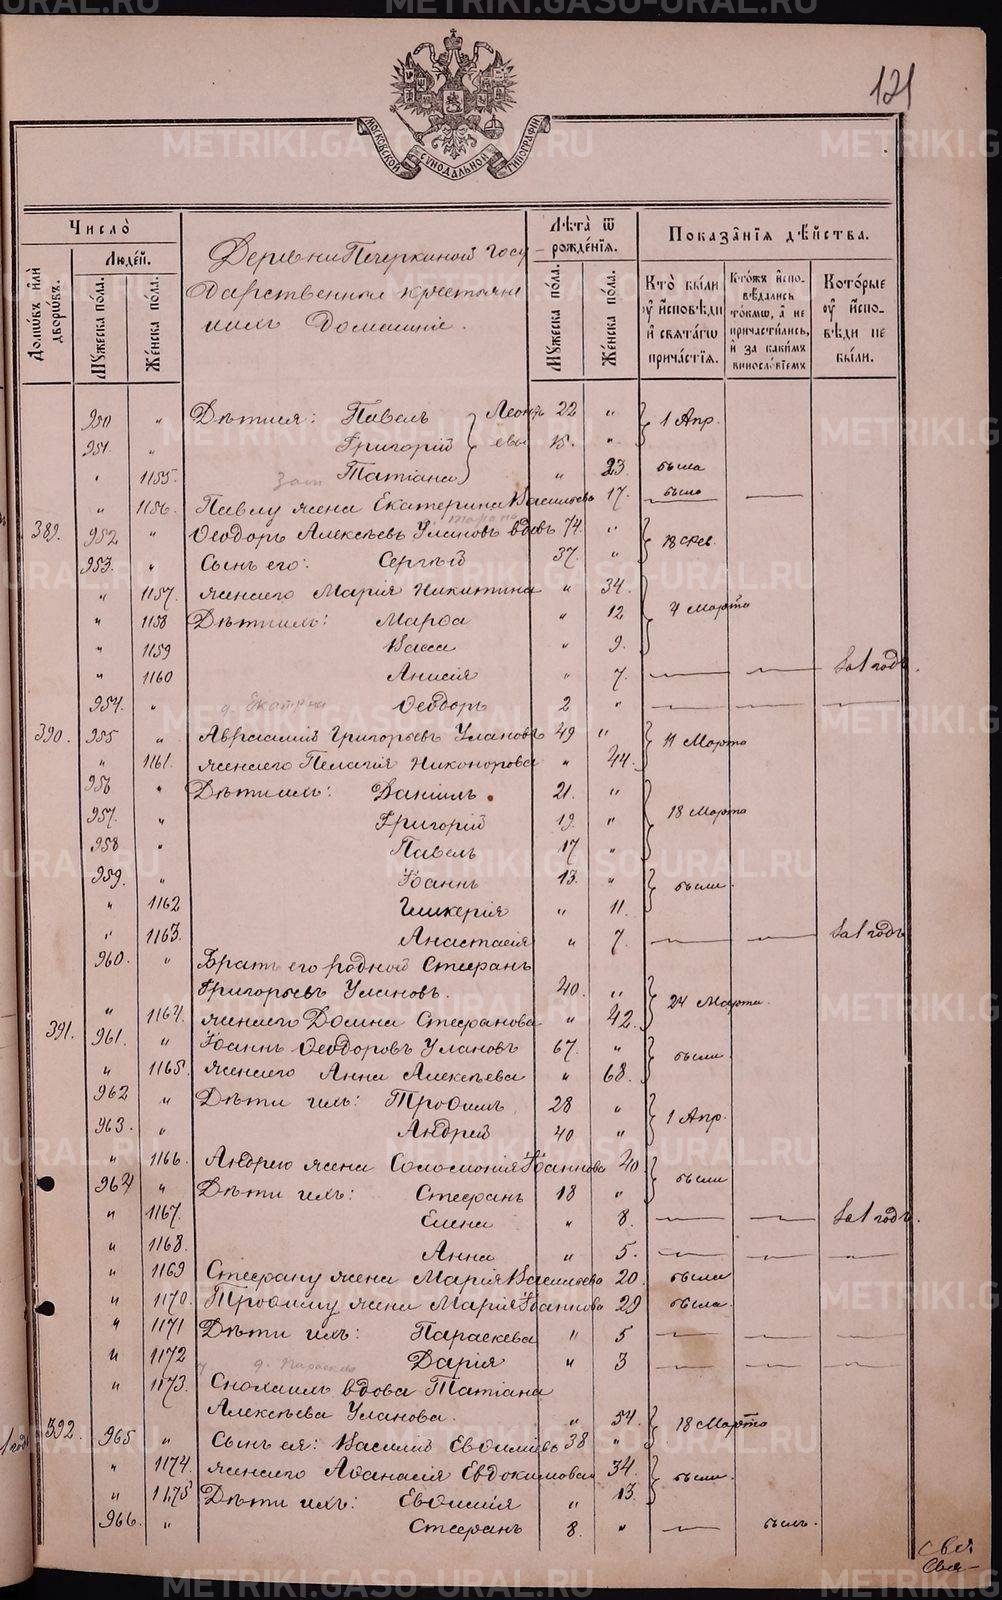 METRIKI.GASO-URAL.RU
121
МОСКОВСКОЙ СУНОДАЛЬНОЙ ТИПОГРАФІИ
Число̀
Людей.
Домѡвъ или дворѡвъ.
Мужеска пола.
Женска пола.
Деревни Печеркиной Госу
дарственныя крестьяне
ихъ Домашніе.
Лѣта ѿ рожденїя.
Мужеска пола.
Женска пола.
Показанїѧ дѣйства.
Кто были ѹ исповѣди и свѧтагѡ причастїѧ.
Ктожъ исповѣдались токмѡ, а не причастились, и за какимъ винословїемъ
Которые ѹ исповѣди не были.
950 " Дѣти ея: Павелъ Леонть 22 " 1 Апр.
951 " Григорій евы 15. " 
" 1155. Татіана " 23. была
" 1156. Павлу жена Екатерина Васильева 17. было
389. 952 " Ѳеодоръ Алексѣевъ Улановъ вдовъ 74. " 18 Фев.
953. " Сынъ его: Сергѣй 37. "
" 1157. жена его Марія Никитина " 34. 4 Марта
" 1158 Дѣти ихъ: Марѳа " 12
" 1159 Васса " 9.
" 1160 Анисія " 7. За 1 годъ.
954. " Ѳеодоръ 2 "
390. 955 " Авраамій Григорьевъ Улановъ 49 " 11 Марта
" 1161. жена его Пелагія Никонорова " 44.
956 " Дѣти ихъ: Даніилъ. 21. " 18 Марта
957. " Григорій 19. "
958 " Павелъ 17 "
959. " Іоаннъ 13. " были.
" 1162 Гликерія " 11.
" 1163. Анастасія " 7. За 1 годъ
960. " Братъ его родной Стефанъ
Григорьевъ Улановъ. 40. " 24 Марта.
" 1164. жена его Домна Стефанова " 42.
391. 961. " Іоаннъ Ѳеодоровъ Улановъ 67. " были.
" 1165. жена его Анна Алексѣева " 68.
962 " Дѣти ихъ: Трофимъ 28 " 1 Апр.
963. " Андрей 40 "
" 1166. Андрею жена Соломонія Іоаннова 40. были
964 " Дѣти ихъ: Стефанъ 18 "
" 1167. Елена " 8. За 1 годъ.
" 1168. Анна " 5.
" 1169 Стефану жена Марія Васильева 20. были
" 1170. Трофиму жена Марія Іоаннова 29 была.
" 1171 Дѣти ихъ: Параскева " 5
" 1172 Дарія " 3
" 1173. Сноха имъ вдова Татіана
Алексѣева Уланова. " 54. 18 Марта
392. 965 " Сынъ ея: Василій Евфиміевъ 38 "
" 1174. жена его Аѳанасія Евдокимова 34. были.
" 1175 Дѣти ихъ: Евфимія " 13.
966. " Стефанъ 8. " былъ.